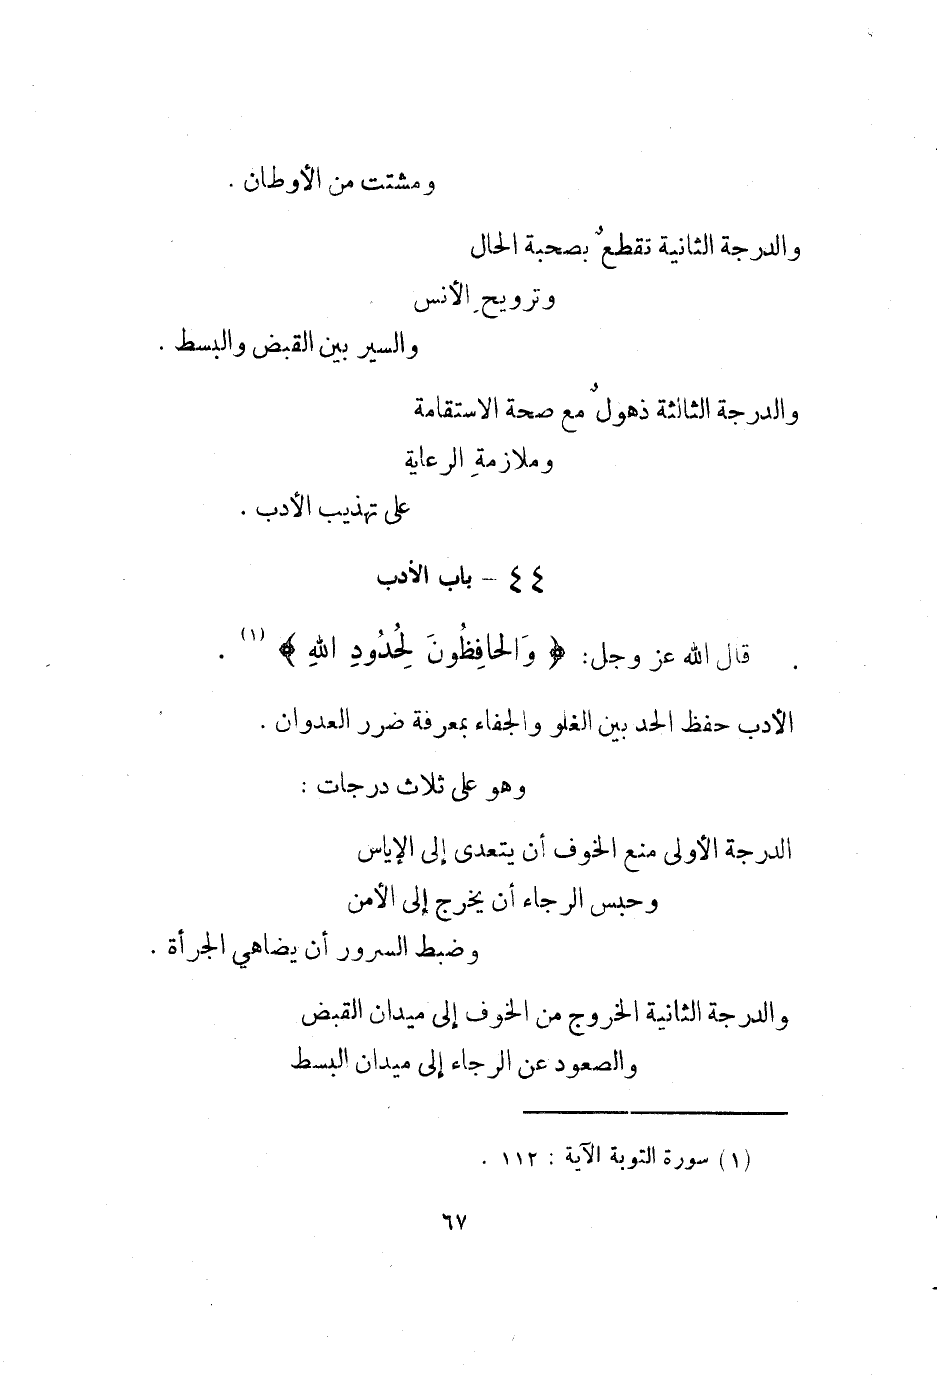 ومشتت من الأوطان .
والدرجة الثانية تقطعٌ بصحبة الحال
وترويحِ الأنس
والسير بين القبض والبسط .
والدرجة الثالثة ذهولٌ مع صحة الاستقامة
وملازمةِ الرعاية
على تهذيب الأدب .
٤٤ - باب الأدب
قال الله عز وجل: ﴿ وَالحافِظُونَ لِحُدُودِ اللهِ ﴾ (١) .
الأدب حفظ الحد بين الغلو والجفاء بمعرفة ضرر العدوان .
وهو على ثلاث درجات :
الدرجة الأولى منع الخوف أن يتعدى إلى الإياس
وحبس الرجاء أن يخرج إلى الأمن
وضبط السرور أن يضاهي الجرأة .
والدرجة الثانية الخروج من الخوف إلى ميدان القبض
والصعود عن الرجاء إلى ميدان البسط
(١) سورة التوبة الآية : ١١٢ .
٦٧